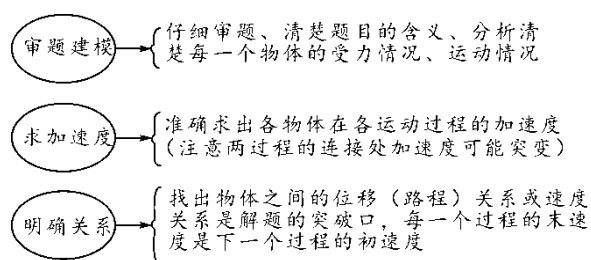 审题建模
仔细审题、清楚题目的含义、分析清
楚每一个物体的受力情况、运动情况
求加速度
准确求出各物体在各运动过程的加速度
(注意两过程的连接处加速度可能突变)
明确关系
找出物体之间的位移(路程)关系或速度
关系是解题的突破口,每一个过程的末速
度是下一个过程的初速度